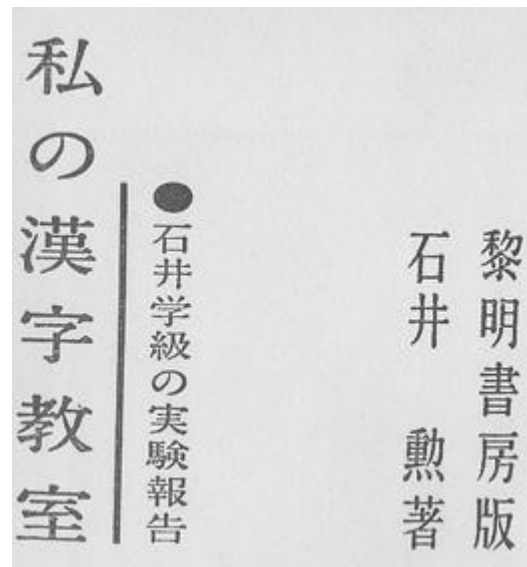 黎明書房版
石井 勲著
●石井学級の実験報告
私の漢字教室